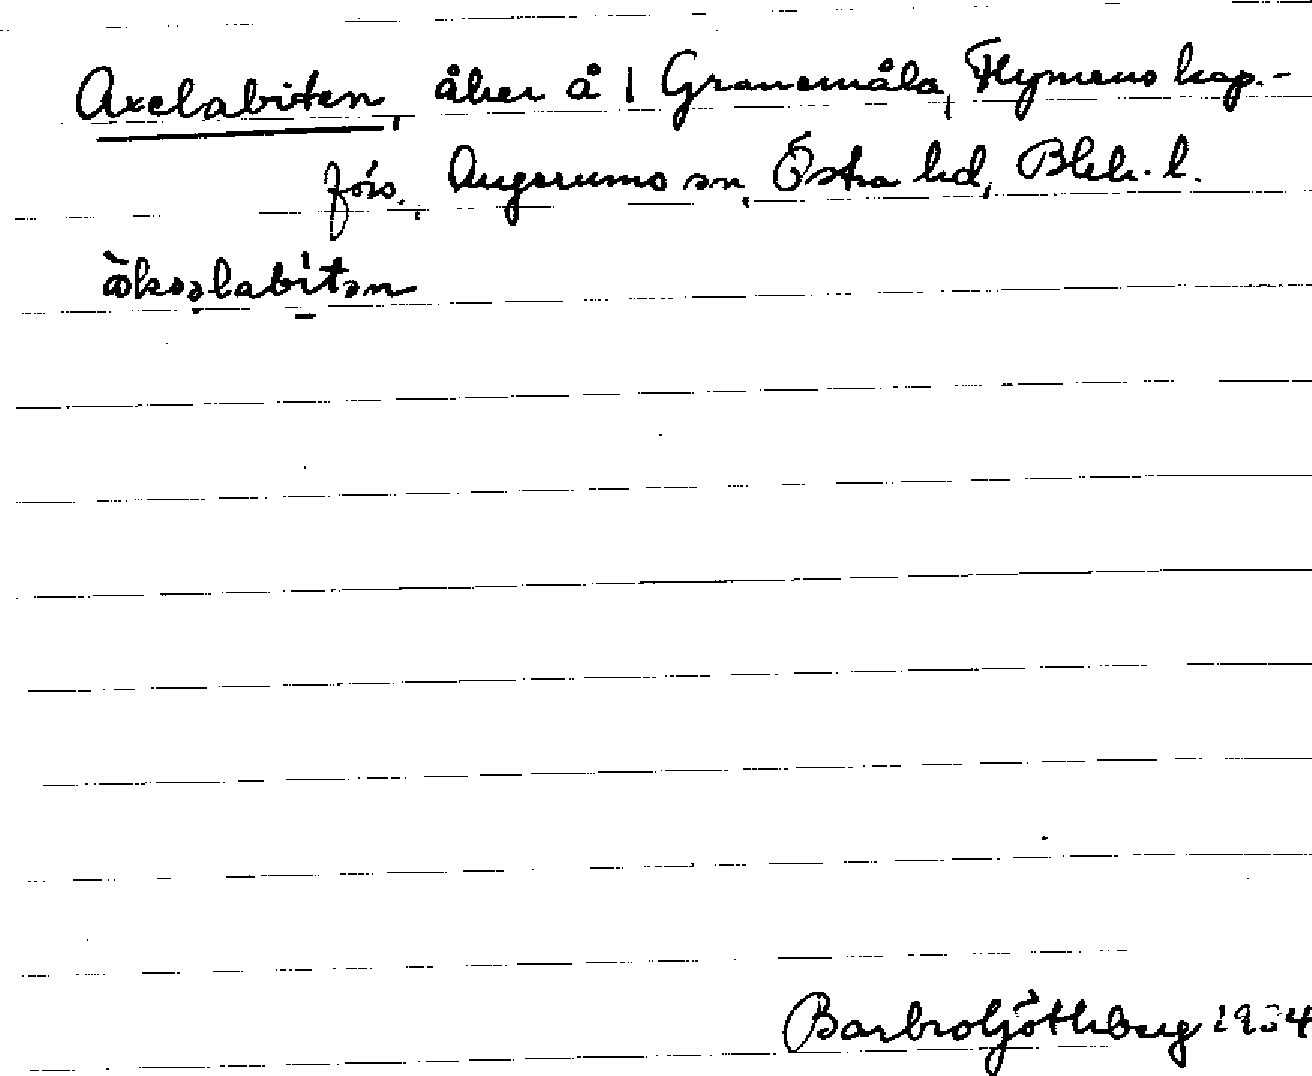 Axelabiten, åker å 1 Granemåla, Flymens kap.-
förs., Augerums sn, Östra hd, Blek. l.
àksəlabítən
Barbro Götlberg 1934